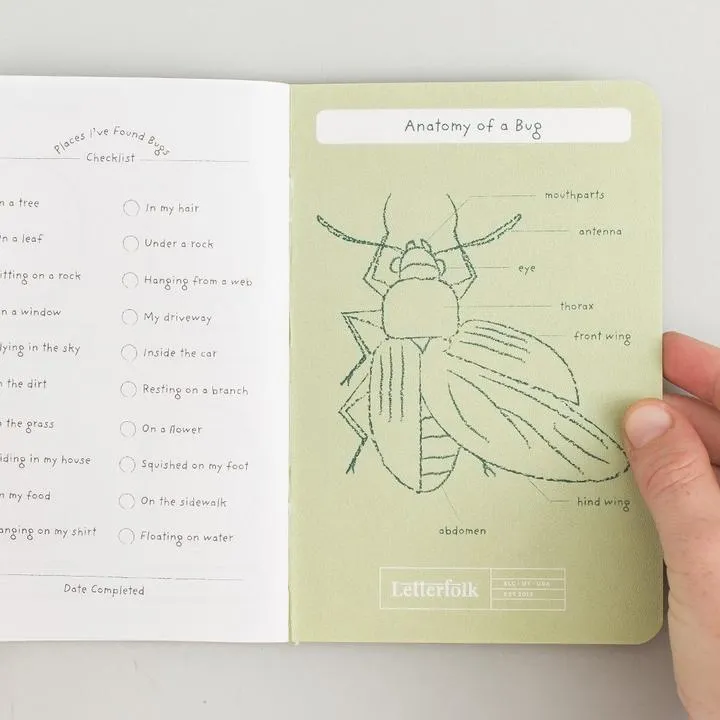 Places I've Found Bugs
Checklist
n a tree
n a leaf
itting on a rock
n a window
lying in the sky
the dirt
the grass
iding in my house
n my food
anging on my shirt
In my hair
Under a rock
Hanging from a web
My driveway
Inside the car
Resting on a branch
On a flower
Squished on my foot
On the sidewalk
Floating on water
Date Completed
Anatomy of a Bug
mouthparts
antenna
eye
thorax
front wing
hind wing
abdomen
Letterfolk